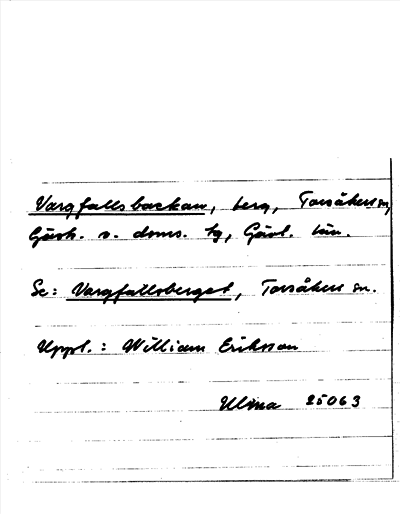 Vargfallsbackan, berg, Torsåkers sn,
Gästr. v. doms. tg, Gävl. län.
Se: Vargfallsberget, Torsåkers sn.
Uppl.: William Erikson
Ulma 25063